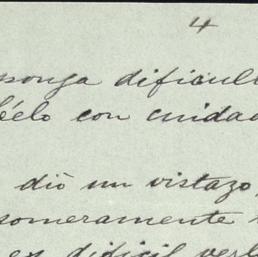 4
ponga dificult
léelo con cuidad
dió un vistazo,
someramente
es dificil verl